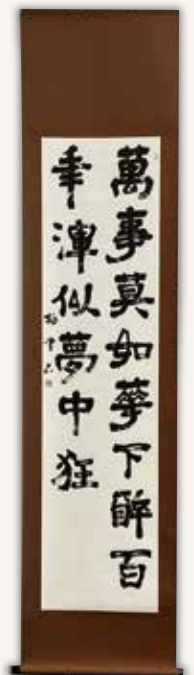 萬事莫如華下醉百
年渾似夢中狂